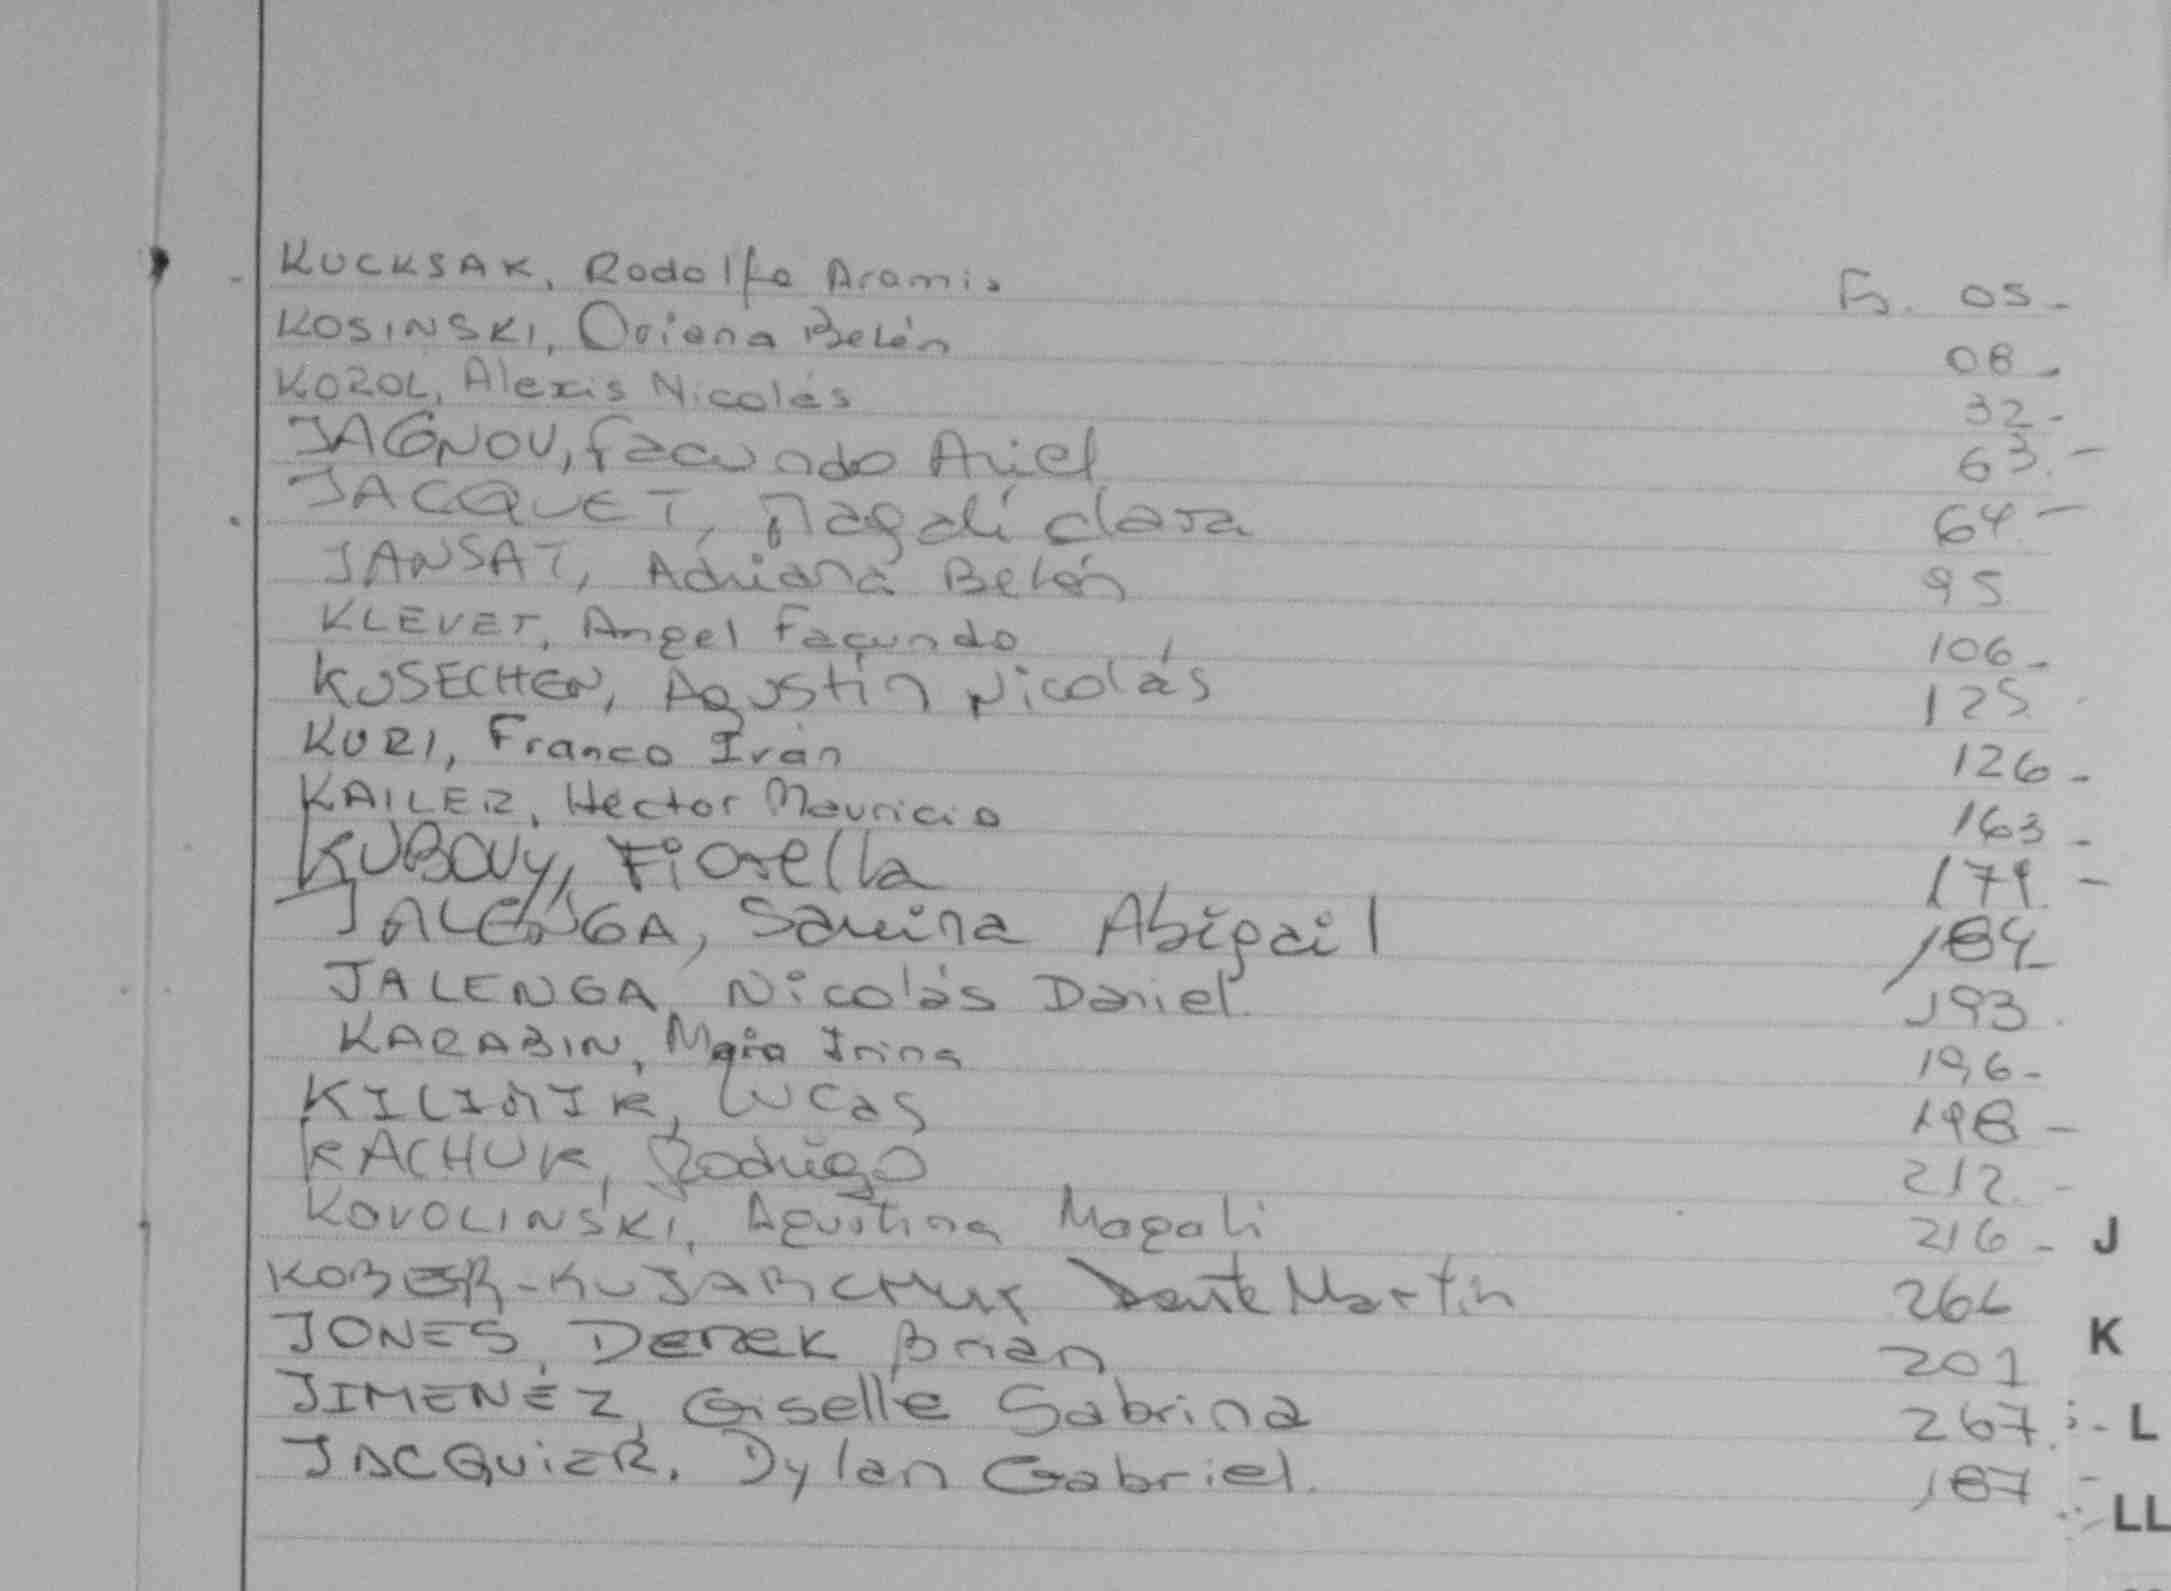 KUCKSAK, Rodolfo Aramis Fs. 05-
KOSINSKI, Oriana Belén 08-
KOZOL, Alexis Nicolás 32-
JAGNOV, Facundo Ariel 63.-
JACQUET, Magalí Clara 64-
JANSAT, Adriana Belén 95
KLEVET, Angel Facundo 106-
KUSECHEN, Agustín Nicolás 125
KURI, Franco Iván 126-
KAILER, Héctor Mauricio 163-
KUBOVY, Fiorella 171-
JALENGA, Samira Abigail 184-
JALENGA, Nicolás Daniel. 193.
KARABIN, Maia Irina 196-
KILIMIK, Lucas 198-
KACHUK, Rodrigo 212.-
KOVOLINSKI, Agustina Magali 216- J
KOBER- Dante Martín 266
K
JONES, Derek Brian 201
JIMENÉZ, Giselle Sabrina 267.- L
JACQUIER, Dylan Gabriel. 187-
LL